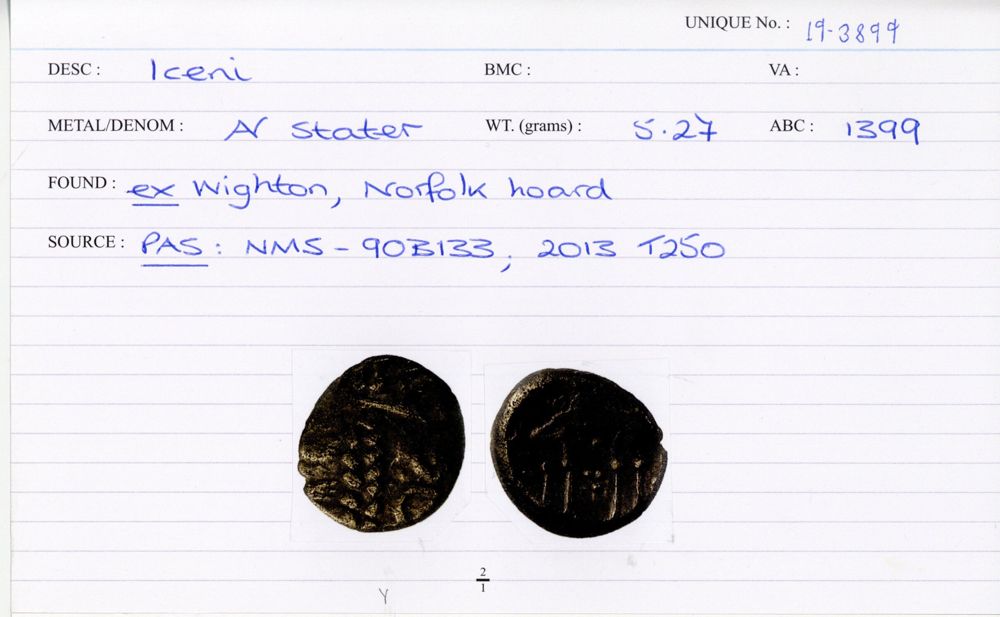 UNIQUE No. : 19-3899
DESC : Iceni BMC : VA :
METAL/DENOM : N Stater WT. (grams) : 5.27 ABC : 1399
FOUND : ex Wighton, Norfolk hoard
SOURCE : PAS : NMS - 90B133, 2013 T250
2
1
Y